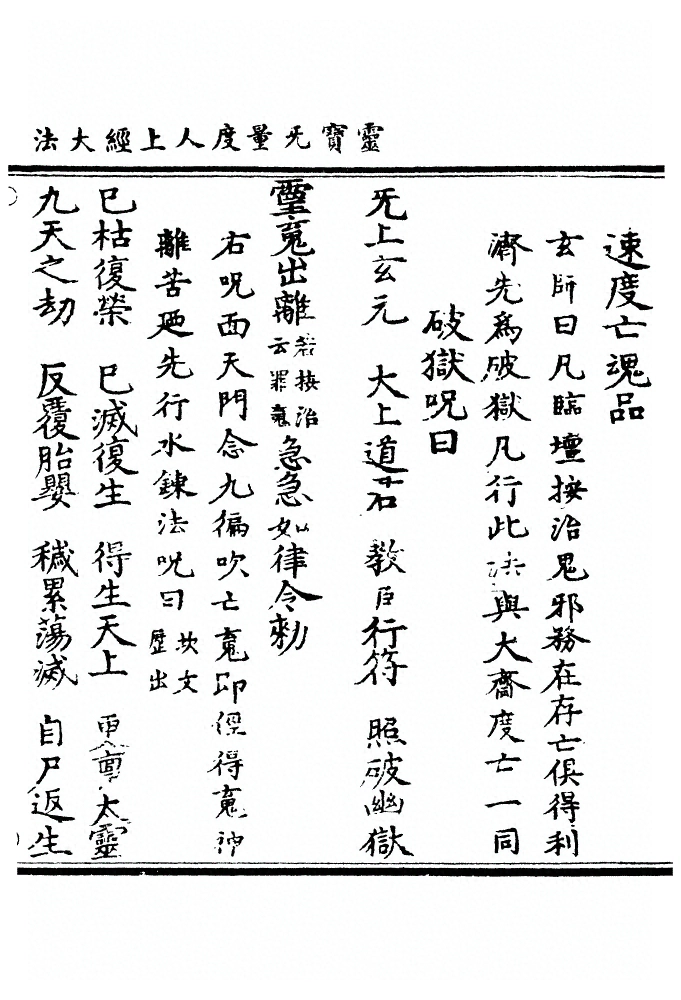 靈寶无量度人上經大法
速度亡魂品
玄師曰凡臨壇按治鬼邪務在存亡俱得利
濟先爲破獄凡行此法與大齋度亡一同
破獄呪曰
无上玄元　太上道君　敎臣行符　照破幽獄
靈䰟出離若按治云罪䰟急急如律令勑
右呪面天門念九徧吹亡䰟卽徑得䰟神
離苦廼先行水鍊法呪曰坎文歷出
巳枯復榮　巳滅復生　得生天上　更稟太靈
九天之劫　反覆胎嬰　穢累蕩滅　自尸返生